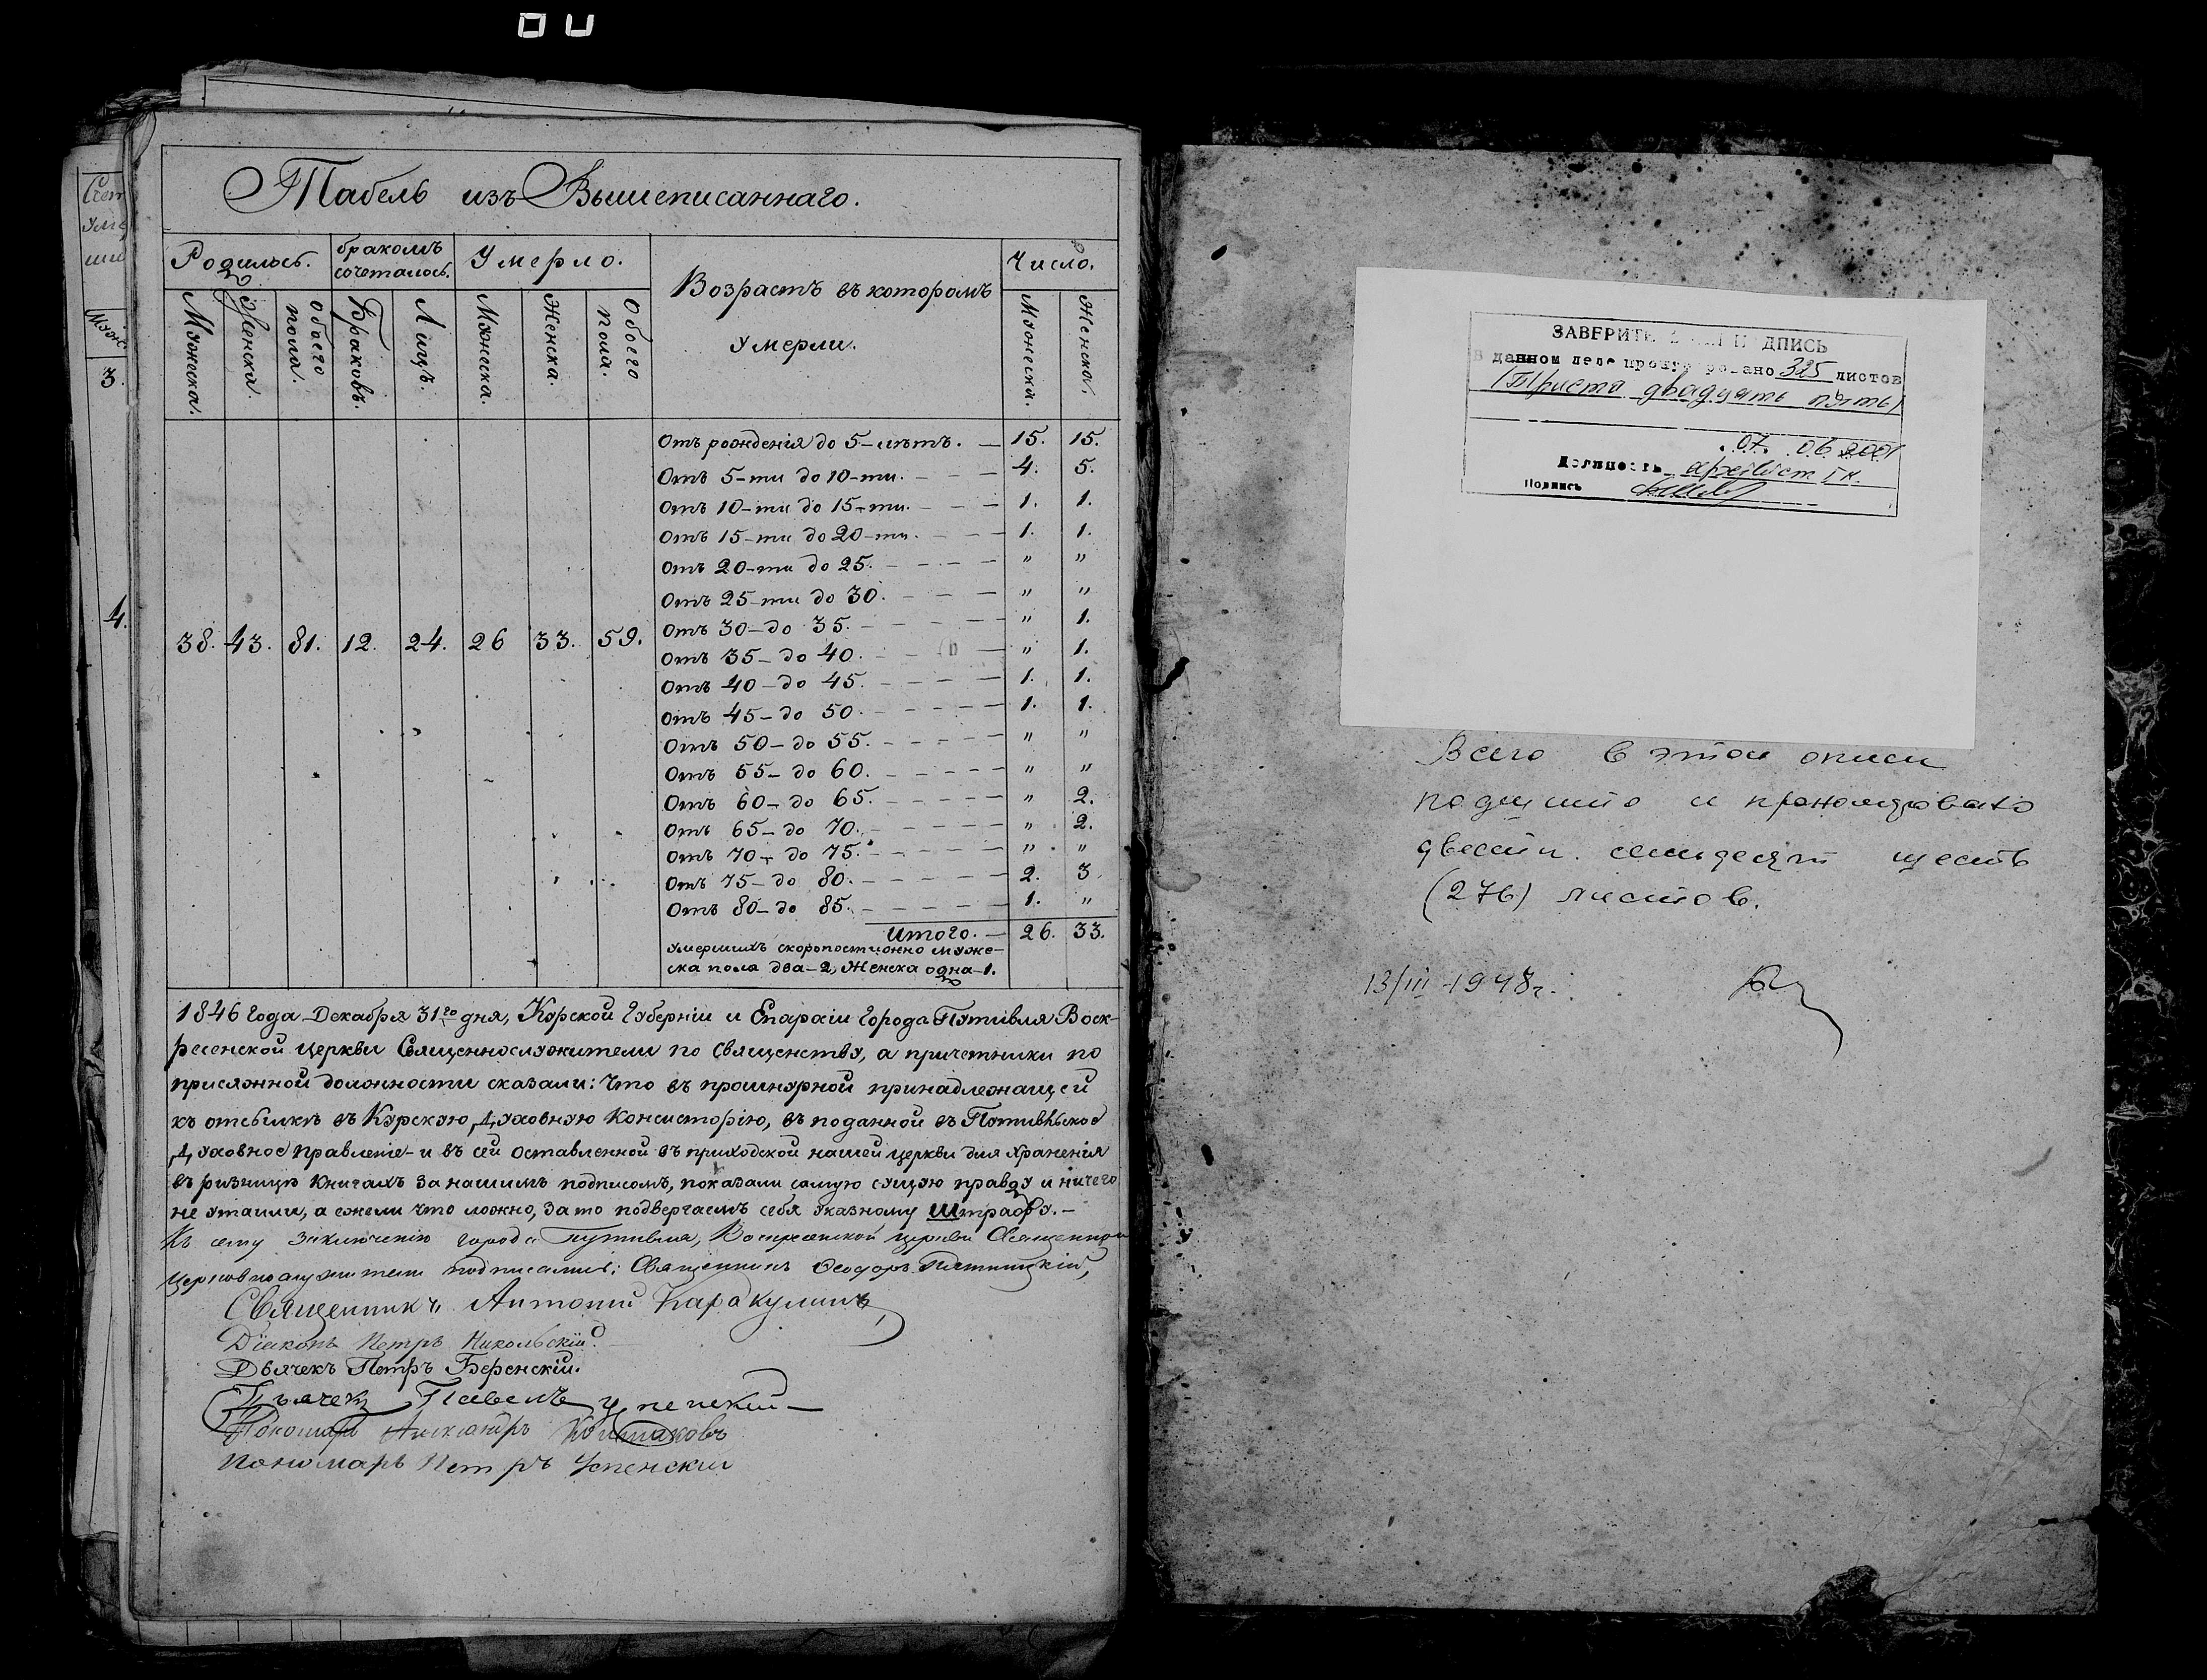 Табель изъ Вышеписаннаго.
Родилось. бракомъ сочеталось. Умерло. Возрастъ въ которомъ умерли. Число.
Мужеска. Женска. Обоего пола. Браковъ. Лицъ. Мужеска. Женска. Обоего пола. Мужеска. Женска.
Отъ рожденія до 5-лѣтъ. — 15. 15.
Отъ 5-ти до 10-ти. — 4. 5.
Отъ 10-ти до 15-ти. — 1. 1.
Отъ 15-ти до 20-ти. — 1. 1.
Отъ 20-ти до 25. — " "
Отъ 25-ти до 30. — " "
Отъ 30-до 35. — " 1.
38. 43. 81. 12. 24. 26 33. 59.
Отъ 35-до 40. — " 1.
Отъ 40-до 45. — 1. 1.
Отъ 45-до 50. — 1. 1.
Отъ 50-до 55. — " "
Отъ 55-до 60. — " "
Отъ 60-до 65. — " 2.
Отъ 65-до 70. — " 2.
Отъ 70-до 75. — " "
Отъ 75-до 80. — 2. 3.
Отъ 80-до 85. — 1. "
Итого. — 26. 33.
Умершихъ скоропостижно муже-
ска пола два-2, Женска одна-1.
1846 года Декабря 31го дня, Курской Губерніи и Епархіи города Путивля Воск-
ресенской церкви Священнослужители по Священству, а причетники по
присяжной должности сказали: что въ прошнурной принадлежащей
къ отсылкѣ въ Курскую Духовную Консисторію, въ поданной въ Путивльское
Духовное правленіе-и въ сей оставленной въ приходской нашей церкви для храненія
въ ризницѣ книгахъ за нашимъ подписомъ, показали самую сущую правду и ничего
не утаили, а ежели что ложно, за то подвергаемъ себя указному штрафу.—
Къ сему заключенію города Путивля, Воскресенской церкви Священно и
церковнослужители подписались: Священникъ Феодоръ Пятницкій,
Священникъ Антоній Каракулинъ
Діаконъ Петръ Никольскій.
Дьячекъ Петръ Беренскій.
Дьячекъ Павелъ Успенскій—
Пономарь Александръ
Пономарь Петръ Успенскій
3.
4.
ЗАВЕРИТЕЛЬНАЯ НАДПИСЬ
В данном деле пронумеровано 325 листов
(Триста двадцать пять)
07. 06 2001
Должность архивист I к.
Подпись
Всего в этой описи
подшито и пронумеровано
двести семьдесят шесть
(276) листов.
13/III-1948г.